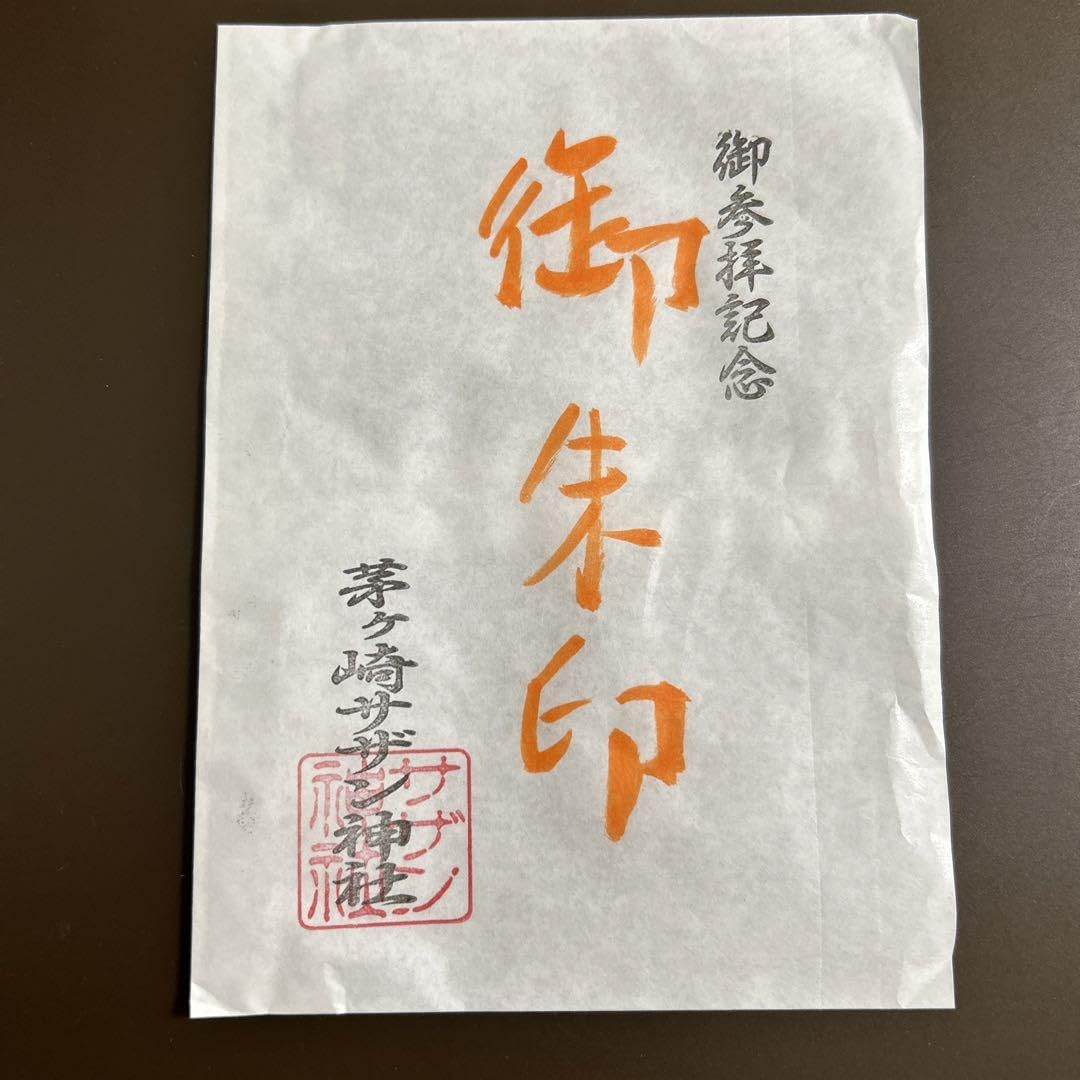 御参拝記念
御朱印
茅ヶ崎サザン神社
サザン
神社